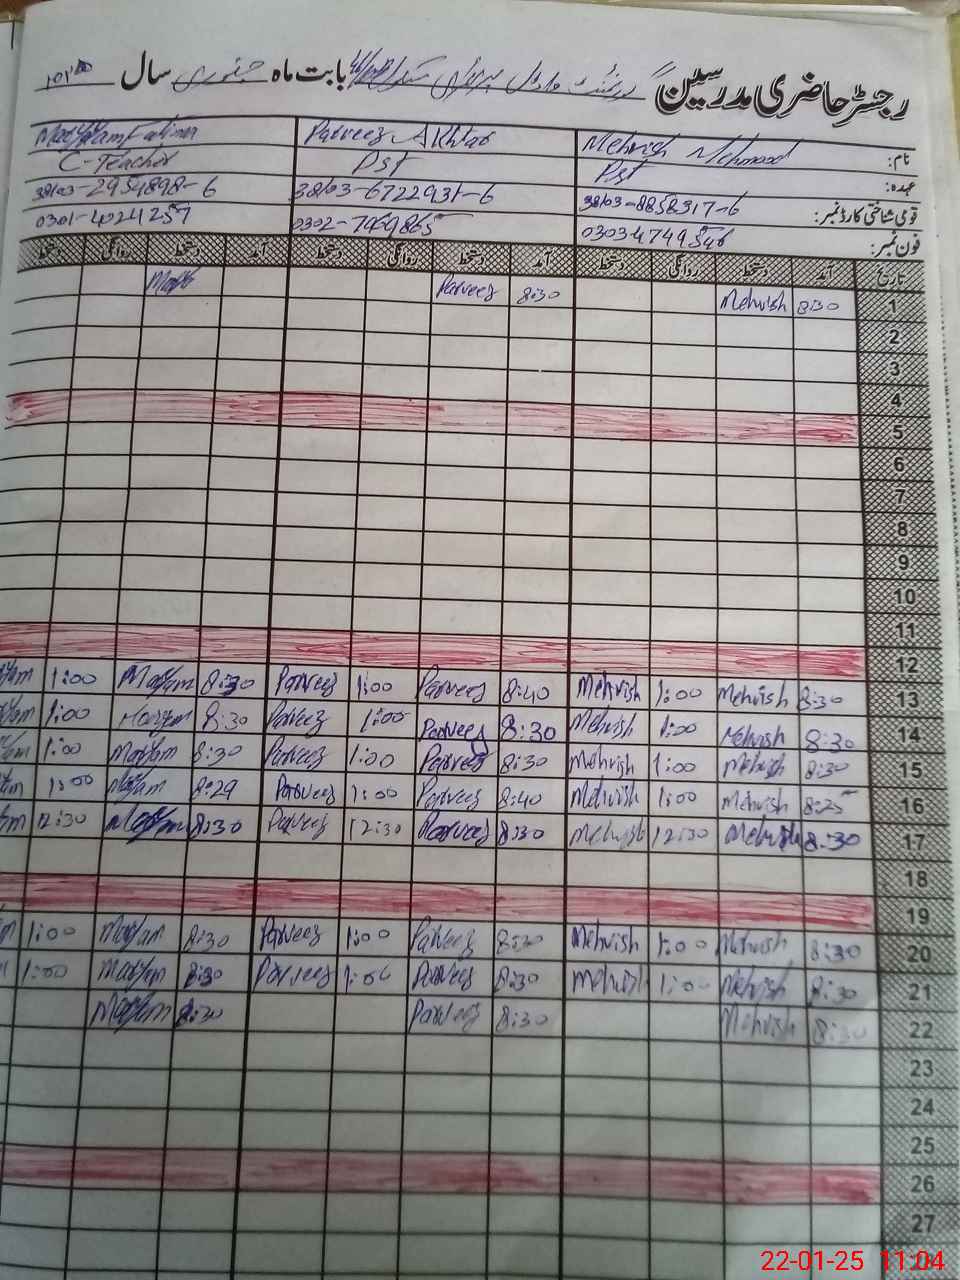 رجسٹر حاضری مدرسین گورنمنٹ ماڈل پرائمری سکول بابت ماہ جنوری سال
نام: Mehvish Mehmood Parveez Akhtar Maryam Fatima
عہدہ: Pst Pst C-Teacher
قومی شناختی کارڈ نمبر: 38103-8858317-6 38103-6722931-6 38103-2954898-6
فون نمبر: 03034749546 0302-7969865 0301-4024257
تاریخ آمد دستخط روانگی دستخط آمد دستخط روانگی دستخط آمد دستخط روانگی دستخط
1 8:30 Mehvish 8:30 Parveez
2
3
4
5
6
7
8
9
10
11
12
13 8:30 Mehvish 1:00 Mehvish 8:40 Parveez 1:00 Parveez 8:30 Maryam 1:00
14 8:30 Mehvish 1:00 Mehvish 8:30 Parveez 1:00 Parveez 8:30 Maryam 1:00
15 8:30 Mehvish 1:00 Mehvish 8:30 Parveez 1:00 Parveez 8:30 Maryam 1:00
16 8:25 Mehvish 1:00 Mehvish 8:40 Parveez 1:00 Parveez 8:29 Maryam 1:00
17 8:30 Mehvish 12:30 Mehvish 8:30 Parveez 12:30 Parveez 8:30 Maryam 12:30
18
19
20 8:30 Mehvish 1:00 Mehvish 8:30 Parveez 1:00 Parveez 8:30 Maryam 1:00
21 8:30 Mehvish 1:00 Mehvish 8:30 Parveez 1:00 Parveez 8:30 Maryam 1:00
22 8:30 Mehvish 8:30 Parveez 8:30 Maryam
23
24
25
26
27
22-01-25 11:04